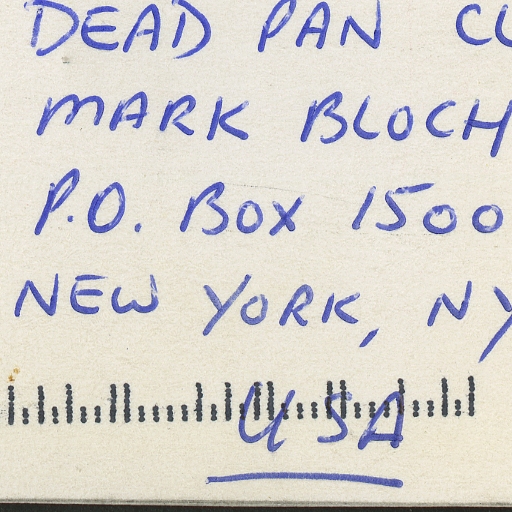 DEAD PAN CL
MARK BLOCH
P.O. BOX 1500
NEW YORK, NY
USA